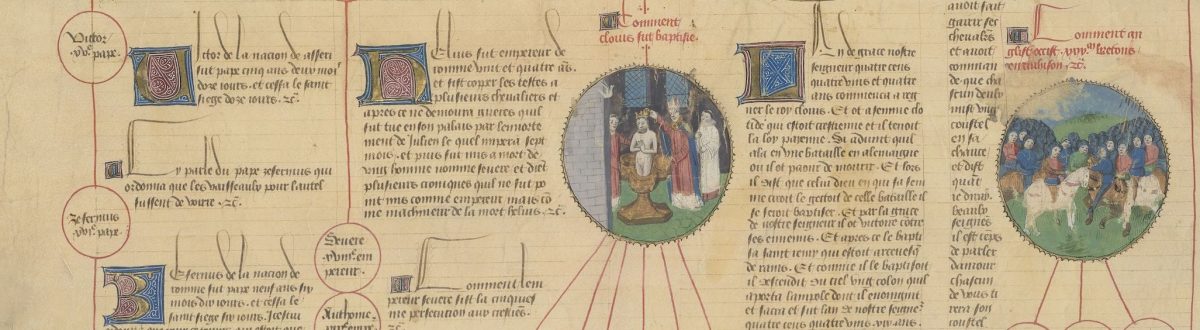 Victor
.xv.e pape.
Victor de la nacion de affri
fut pape cinq ans deux moys
doze iours. et cessa le saint
siege doze iours. &c.
Cy parle du pape zefernus qui
ordonna que les vaisseaulx pour lautel
fussent de voirre. &c.
Zefernus
.xvi.e pape.
Zefernus de la nacion de
romme fut pape neuf ans six
mois dix iours. et cessa le
saint siege six iours. Icestui
Elius fut empereur de
romme vint et quatre ans.
et fist copper les testes a
plusieurs chevaliers et
apres ce ne demoura gueres quil
fut tue en son palais par lenorte
ment de Julien le quel impera sept
mois. et puis fut mis a mort de
ung homme nomme severe et dient
plusieurs croniques quil ne fut po
int mis comme empereur mais co
me machineur de la mort helius. &c.
Severe
.xviii.e em
pereur.
Anthoine
Comment lem
pereur severe fist la cinquies
me persecution aux crestiens.
&c.
Comment
clovis fut baptise.
An de grace nostre
seigneur quatre cens
quatre vins et quatre
ans commenca a reg
ner le roy clovis. Et ot a femme clo
tilde qui estoit crestienne et il tenoit
la loy payenne. Si advint quil
ala en une bataille en alemaigne
ou il ot paour de mourir. Et lors
il dist que celui dieu en qui sa fem
me creoit le gectoit de celle bataille il
se feroit baptiser. Et par la grace
de nostre seigneur il ot victoire contre
ses ennemis. Et apres ce le bapti
sa saint remy qui estoit arcevesq
de rains. Et comme il le baptisoit
il descendit du ciel ung colon quil
aporta lampole dont il enoingnit
et sacra et fut lan de nostre seigneur
quatre cens quatre vins. xix ans.
avoit fait
garnir ses
chevaliers
et avoit
comman
de que cha
scun deulx
mist ung
coustel
en sa
chauce
et dist
quant
ie diray.
beaulx
seigneurs
il est temps
de parler
damour
chascun
de vous ti
rera son
coustel
Comment en
glist occist
bretons
en trahison &c.